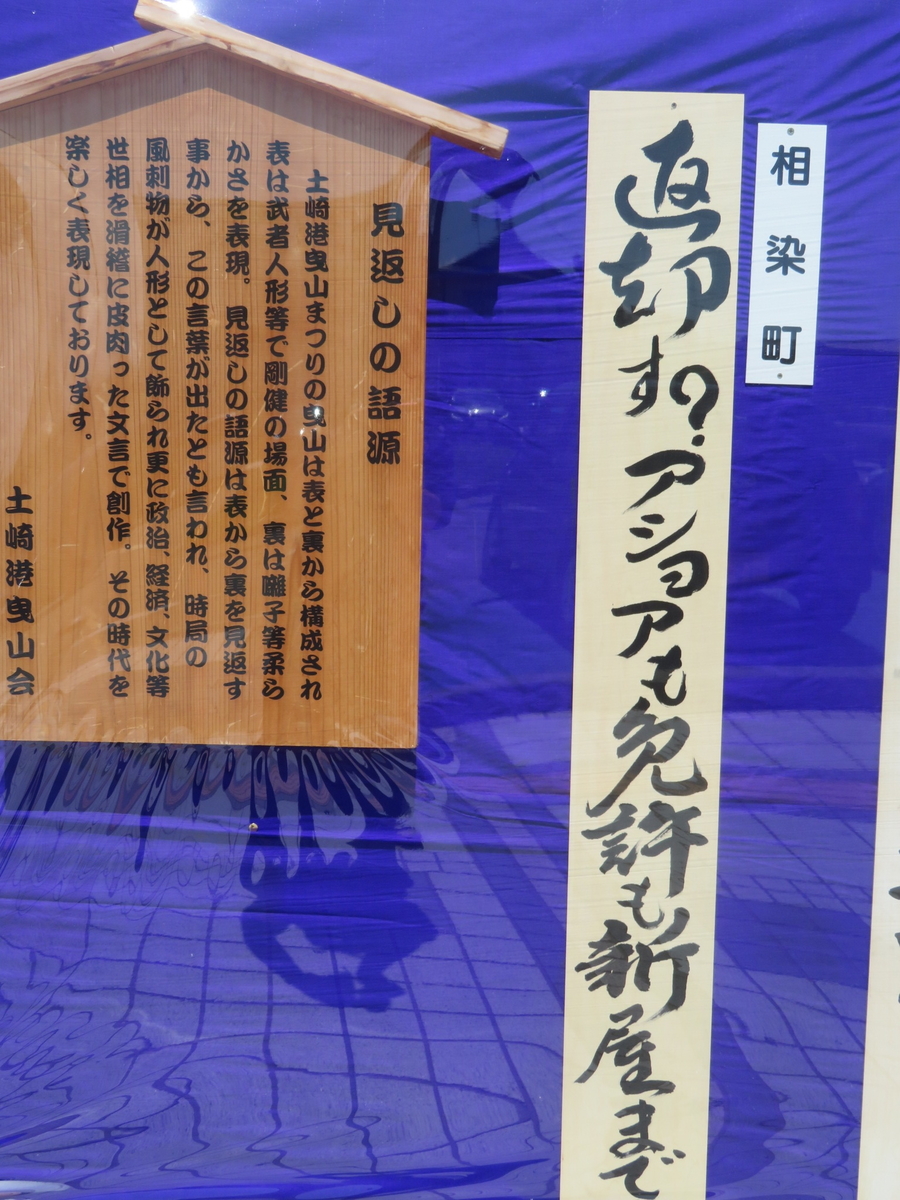 相染町
返却すの?.アショアも免許も新屋まで
見返しの語源
土崎港曳山まつりの曳山は表と裏から構成され
表は武者人形等で剛健の場面、裏は囃子等柔ら
かさを表現。見返しの語源は表から裏を見返す
事から、この言葉が出たとも言われ、時局の
風刺物が人形として飾られ更に政治、経済、文化等
世相を滑稽に皮肉った文言で創作。その時代を
楽しく表現しております。
土崎港曳山会